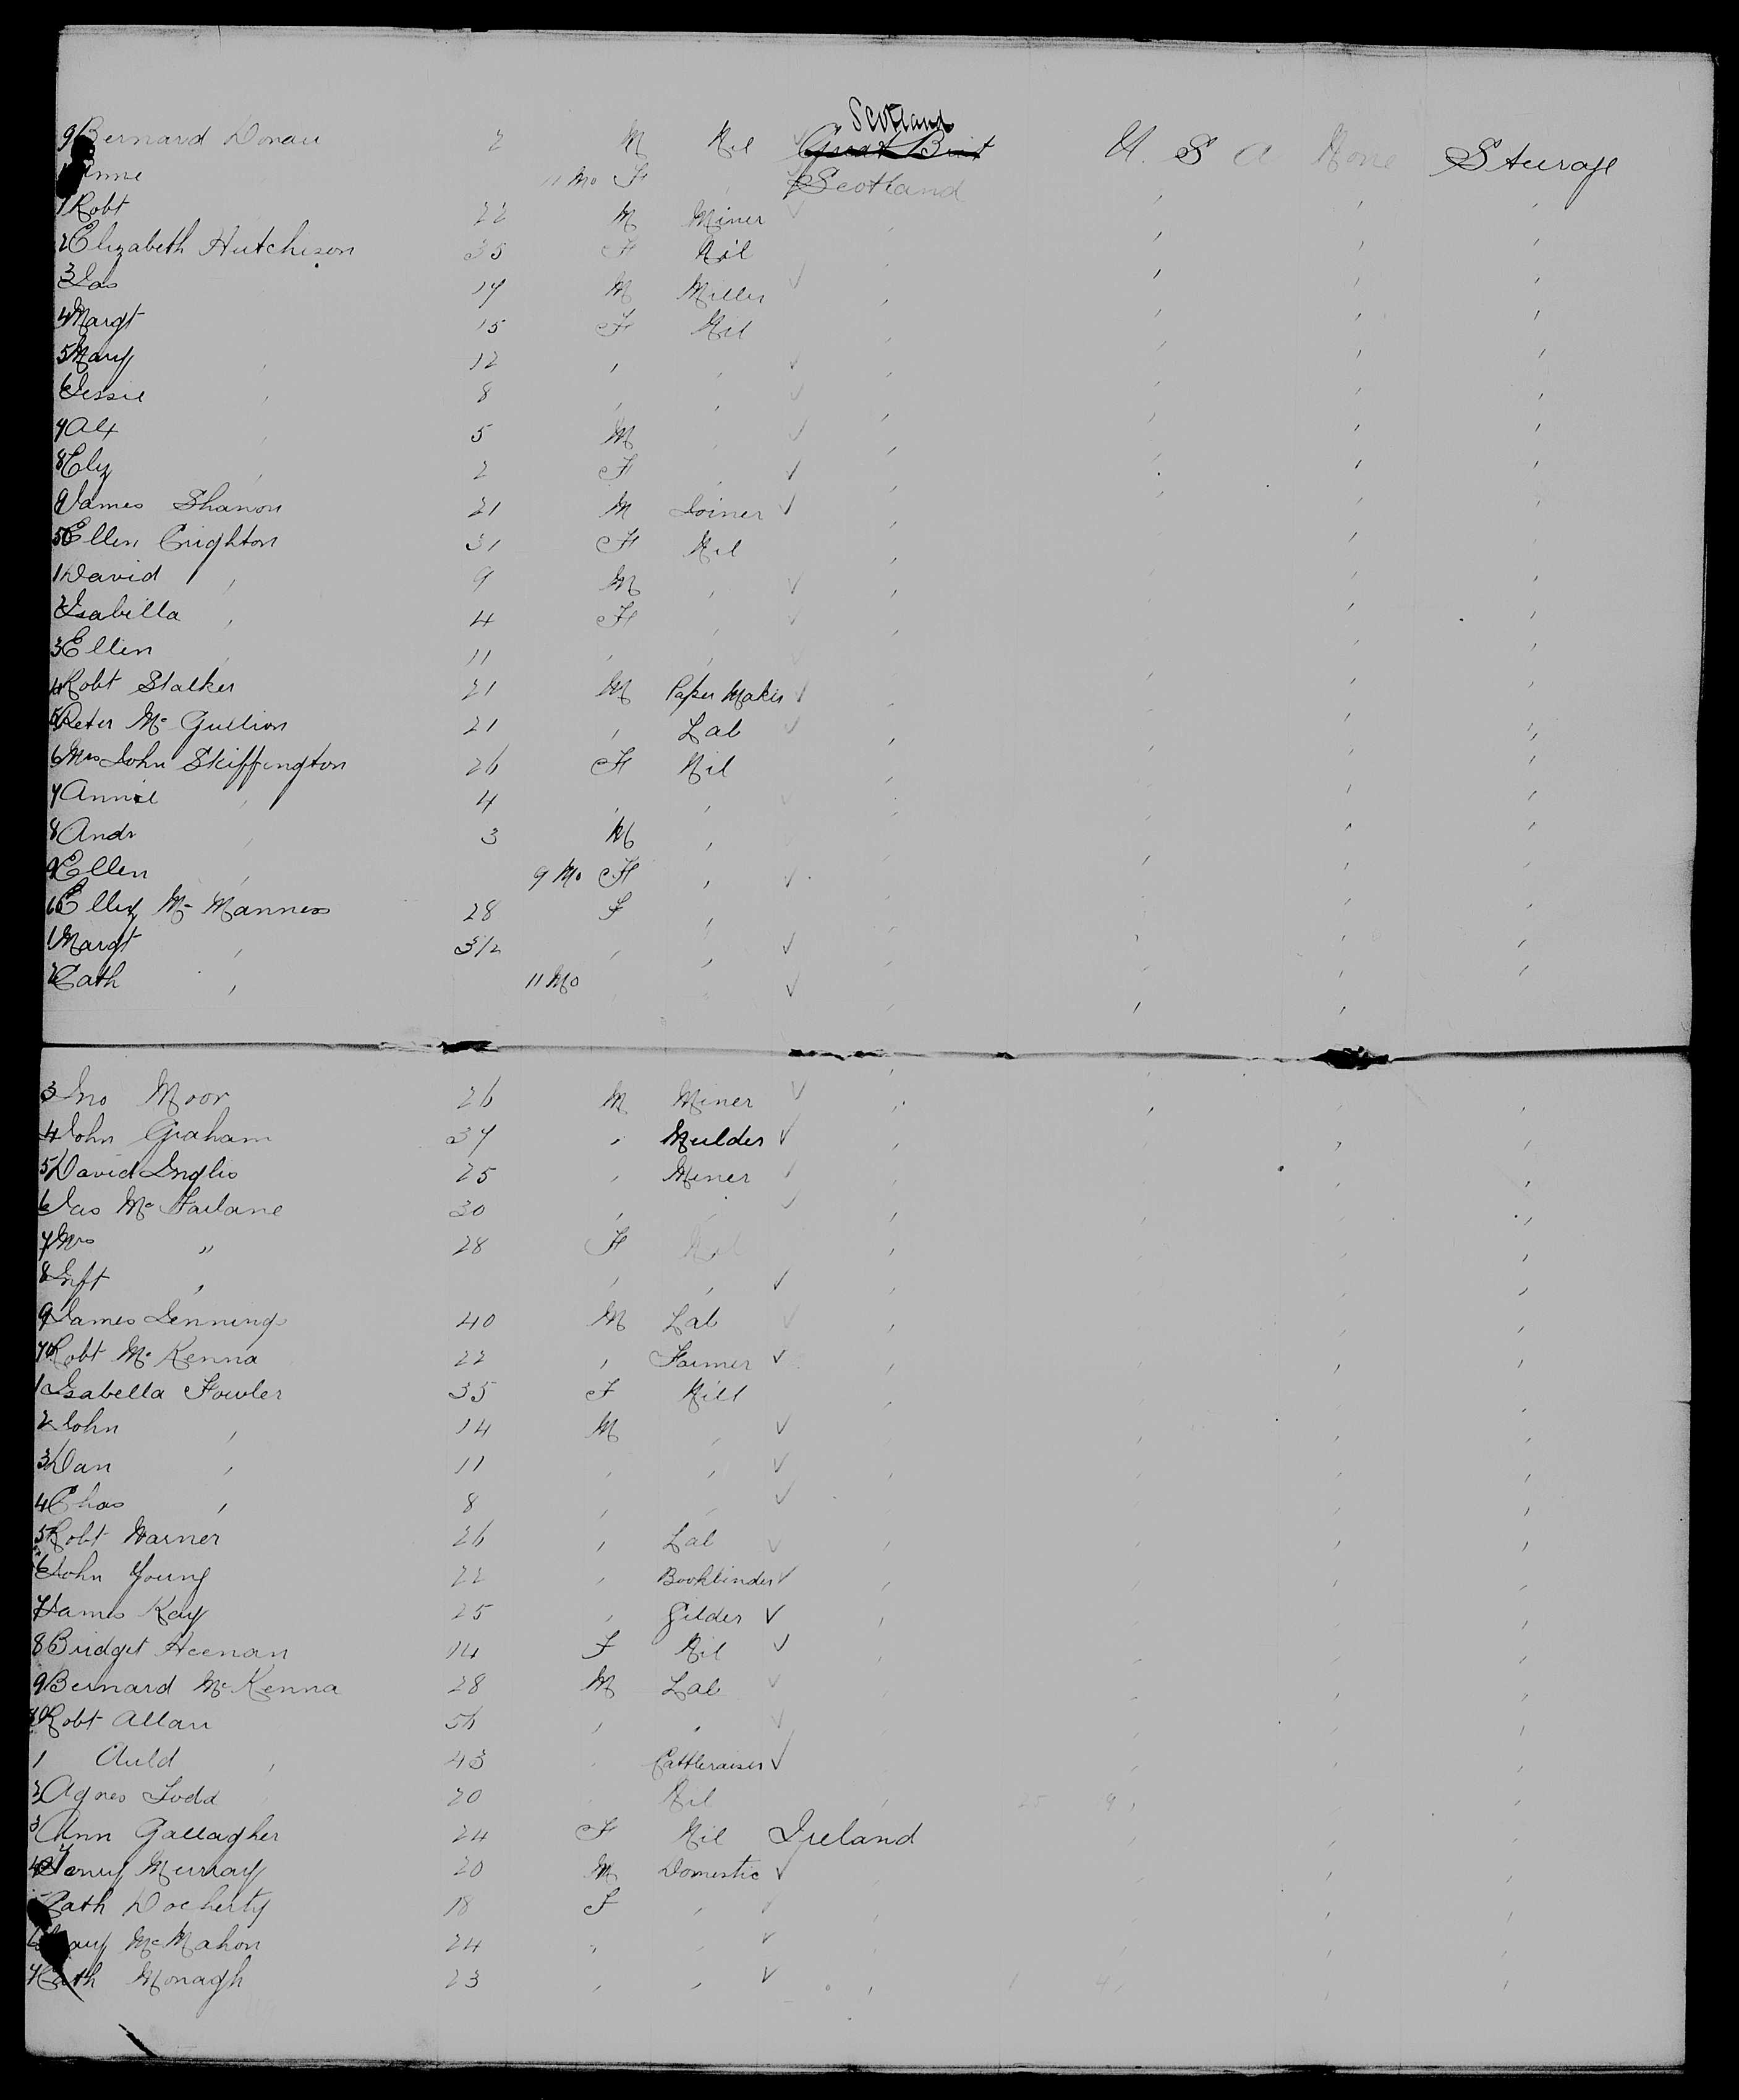 Scotland
9 Bernard Donan 2 M Nil Great Brit U. S A None Steerage
Anne 11 Mo F " Scotland
1 Robt 22 M Miner
2 Elizabeth Hutcheson 35 F Nil
3 Jas 17 M Miller
4 Margt 15 F Nil
5 Mary " 12 " "
6 Jessie " 8 " "
7 Alx " 5 M "
8 Eliz " 2 F "
9 James Shanon 21 M Joiner
50 Ellen Crighton 31 F Nil
1 David " 9 M "
2 Isabella " 4 F "
3 Ellen " 11 " "
4 Robt Stalker 21 M Paper Maker
5 Peter Mc Gullion 21 " Lab
6 Mrs John Skiffington 26 F Nil
7 Annie " 4 " "
8 Andr " 3 M "
9 Ellen " 9 Mo F "
60 Mc Manness 28 F "
1 Margt " 3 1/2 " "
2 Cath " 11 Mo " "
3 Jno Moor 26 M Miner
4 John Graham 37 " Mulder
5 David Inglis 25 " Miner
6 Jas Mc Farlane 30 " "
7 Mrs " 28 F Nil
8 Inft " " "
9 James Jennings 40 M Lab
70 Robt Mc Kenna 22 " Farmer
1 Isabella Fowler 35 F Nill
2 John " 14 M "
3 Dan " 11 " "
4 Chas " 8 " "
5 Robt Warner 26 " Lab
6 John Young 22 " Bookbinder
7 James Kay 25 " Gilder
8 Bridget Heenan 14 F Nil
9 Bernard Mc Kenna 28 M Lab
80 Robt Allan 56 " "
1 Auld " 43 " Cattleraiser
2 Agnes Todd 20 " Nil
3 Ann Gallagher 24 F Nil Ireland
4 Henry Murray 20 M Domestic
Cath Docherty 18 F "
6 Mary McMahon 24 " "
7 Kath Monagh 23 " "